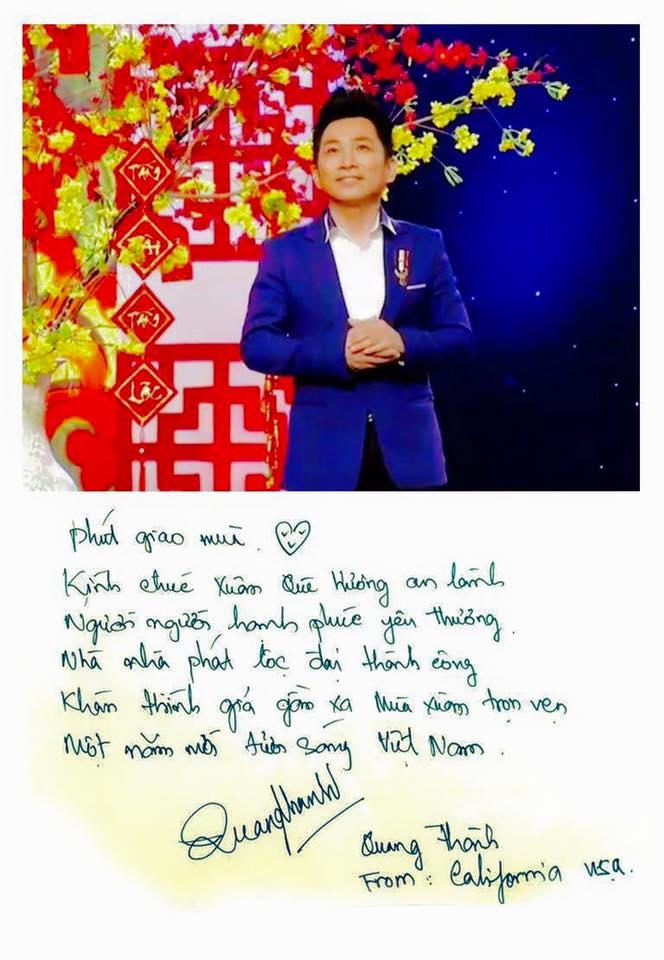 TĂNG
TĂNG
LỘC
phút giao mùa.
Kính chúc Xuân Quê Hương an lành
Người người hạnh phúc yêu thương.
Nhà nhà phát lộc đại thành công
Khán thính giả gần xa Mùa xuân trọn vẹn
Một năm mới tươi sáng Việt Nam.
Quangthanh
Quang Thành
From: California USA.